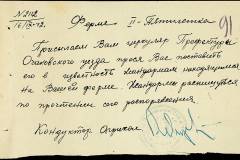 № 2112
16/IX-42.
Ферме II-Пятигенка
91
Присылаем Вам циркуляр Префектуры
Очаковского уезда прося Вас поставить
его в известность жандармам находящимся
на Вашей ферме. Жандармы распишутся
по прочтении сего распоряжения.
Кондуктор Агрикол